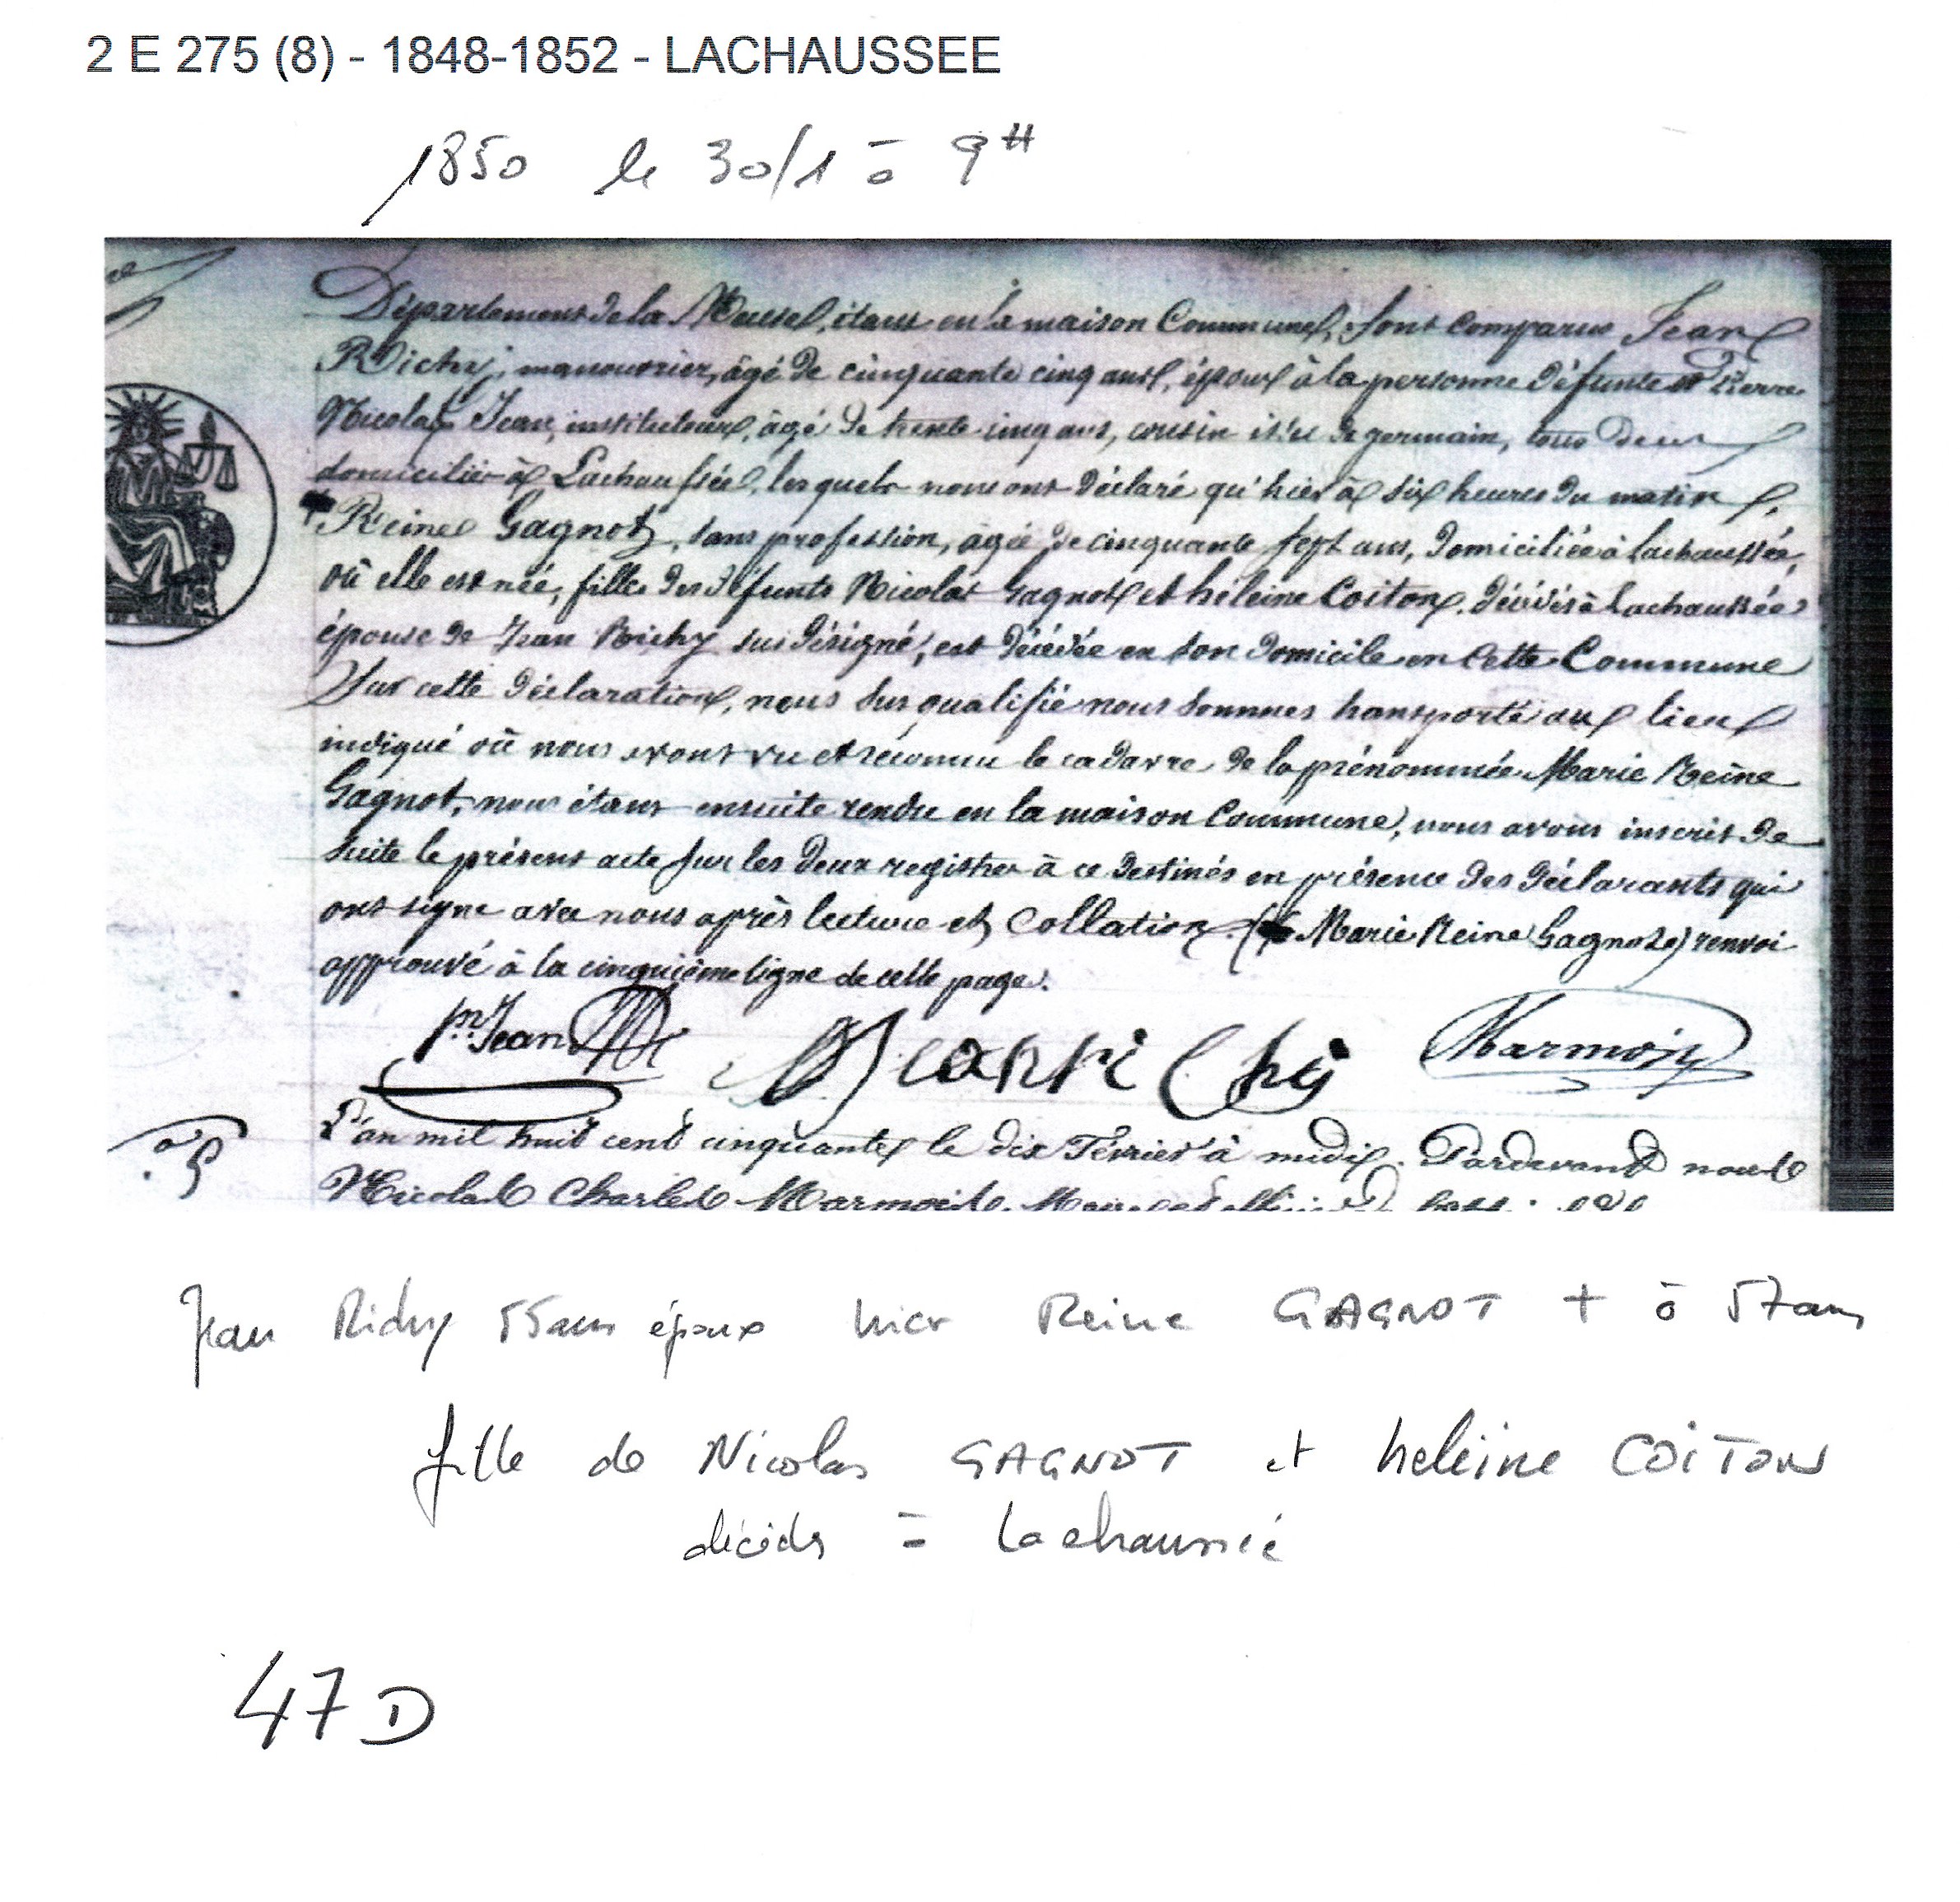 2 E 275 (8) - 1848-1852 - LACHAUSSEE
1850 le 30/1 à 9H
Département de la Meuse, étant en la maison Commune, sont comparus Jean
Richy, manouvrier, âgé de cinquante cinq ans, époux à la personne défunte et Pierre
Nicolas Jean, instituteur, âgé de trente cinq ans, cousin issu de germain, tous deux
domiciliés à Lachaussée, lesquels nous ont déclaré qu'hier à six heures du matin,
Reine Gagnot, sans profession, âgée de cinquante sept ans, domiciliée à Lachaussée,
où elle est née, fille des défunts Nicolas Gagnot et héleine Coiton, décédés à Lachaussée
épouse de Jean Richy susdésigné, est décédée en son domicile en cette Commune
Sur cette déclaration, nous susqualifié nous sommes transporté au lieu
indiqué où nous avons vu et reconnu le cadavre de la prénommée Marie Reine
Gagnot, nous étant ensuite rendu en la maison Commune, nous avons inscrit de
suite le présent acte sur les deux registres à ce destinés en présence des déclarants qui
ont signé avec nous après lecture et Collation. (Marie Reine Gagnot) renvoi
approuvé à la cinquième ligne de cette page.
pre. Jean Jean richy Marmoit
L'an mil huit cent cinquante le dix Février à midi. Pardevant nous
Nicolas Charles Marmoit, Maire
Jean Richy 55 ans époux Reine GAGNOT + à 57 ans
fille de Nicolas GAGNOT et heleine COITON
décédés à Lachaussée
47 D